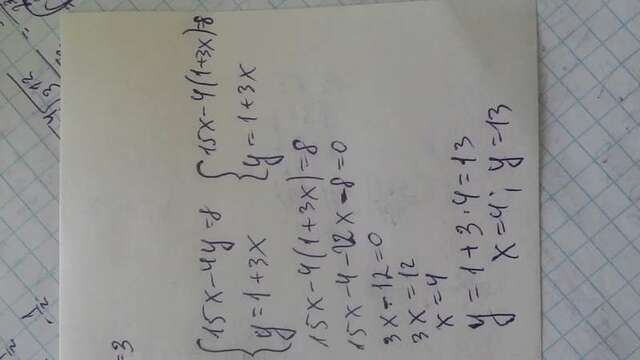 -1/2
4 3^12
=3
{15x-4y=8 {15x-4(1+3x)=8
y=1+3x y=1+3x
15x-4(1+3x)=8
15x-4-12x-8=0
3x-12=0
3x=12
x=4
y=1+3·4=13
x=4; y=13